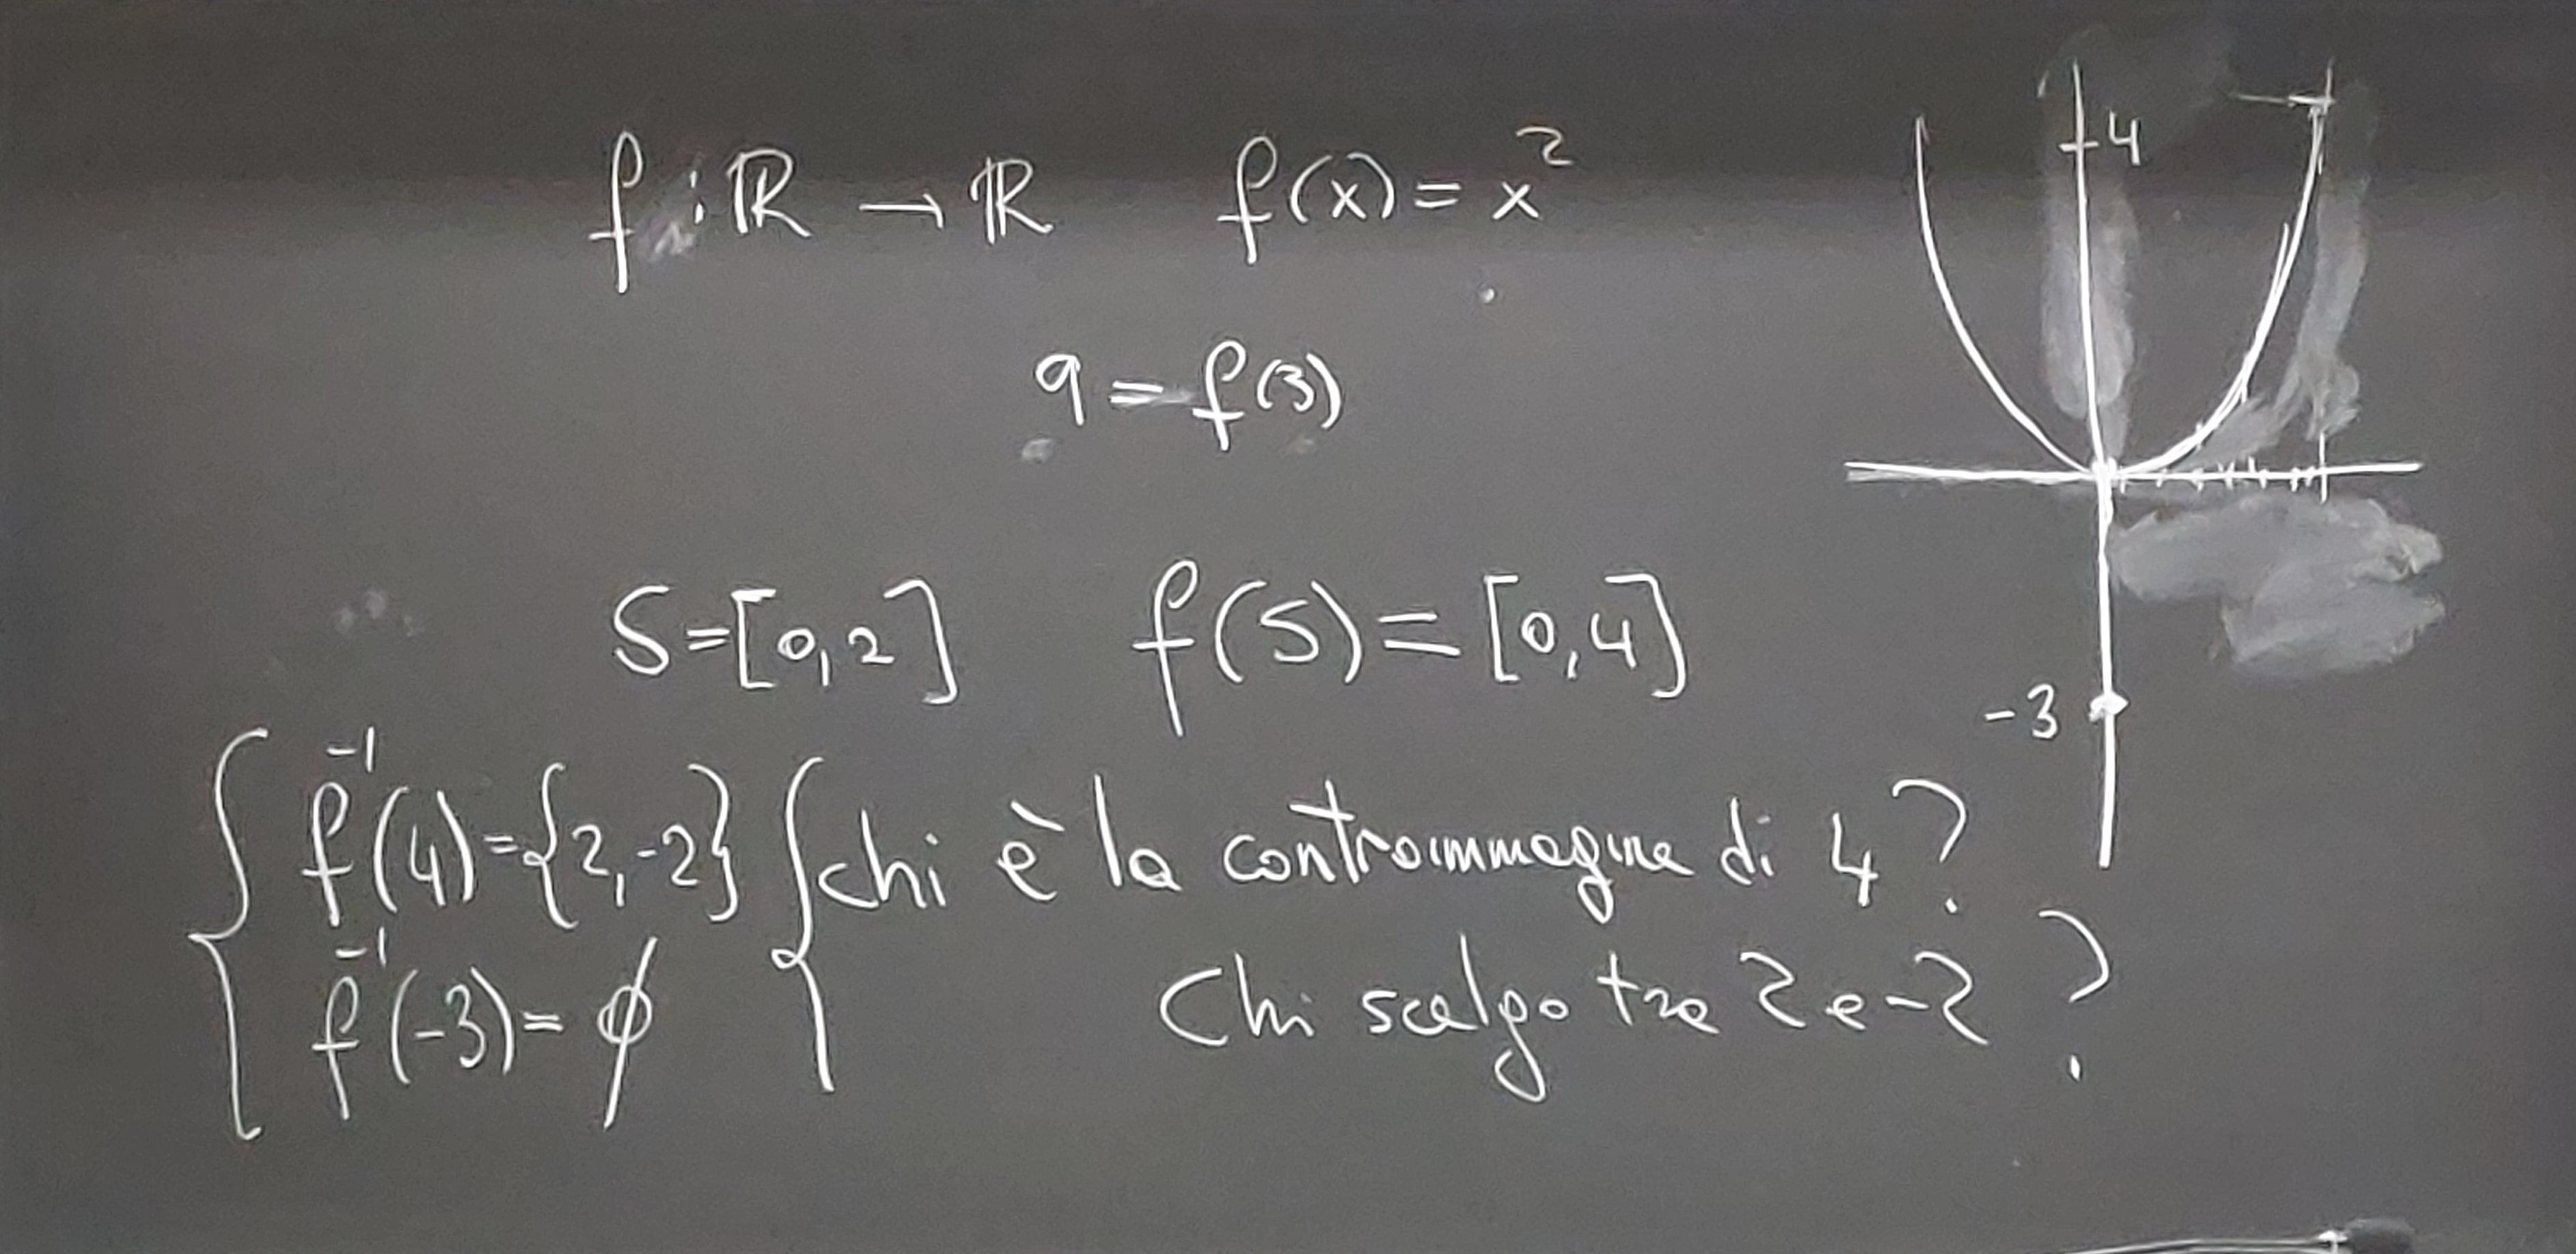 f : ℝ → ℝ f(x) = x²
4
9 = f(3)
S = [0,2] f(S) = [0,4]
-3
f⁻¹(4) = {2,-2} chi è la controimmagine di 4?
f⁻¹(-3) = ∅ Chi scelgo tra 2 e -2 ?